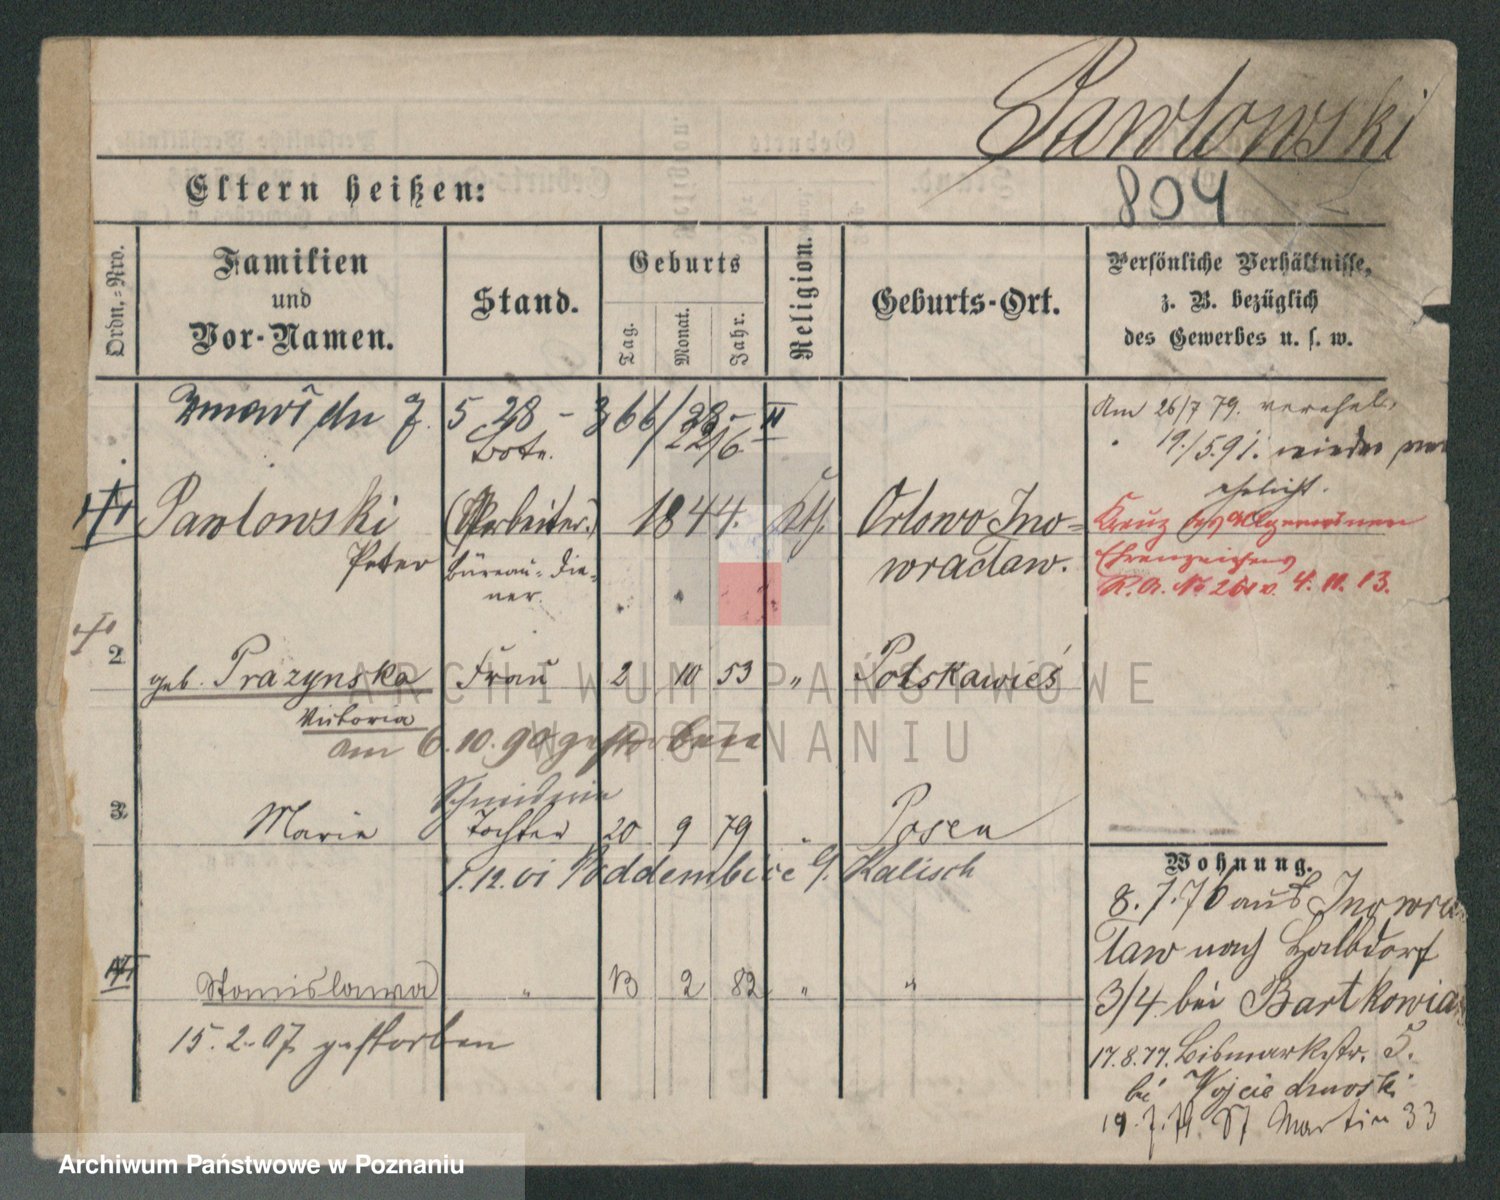 Pawlowski
804
Eltern heißen:
Ordn.-Nro.
Familien
und
Vor-Namen.
Stand.
Geburts
Tag.
Monat.
Jahr.
Religion.
Geburts-Ort.
Persönliche Verhältnisse,
z. B. bezüglich
des Gewerbes u. s. w.
5 28 - 3 66/28 - II
Bote. 22/6
Am 26/7 79. verehel.
19./5. 91. wieder ver
ehelicht.
Pawlowski (Arbeiter.) 1844. Kth. Orlowo Ino=
Peter Büreau=Die= wraclaw.
ner.
Kreuz des Allgemeinen
Ehrenzeichens
4. 11. 13.
2 geb. Prazynska Frau 2 10 53 " Polskawieś
Victoria
am 6. 10. 90 gestorben
Schneiderin
3. Marie Tochter 20 9 79 " Posen
1. 12. 01 Poddembice G. Kalisch
4 Stanislawa " 13 2 82 " "
15. 2. 07 gestorben
Wohnung.
8. 7. 76 aus Inowra
claw nach Halbdorf
3/4 bei Bartkowiak
17. 8. 77. Bismarckstr. 5.
bei
19. 7. St Martin 33
ARCHIWUM PAŃSTWOWE
W POZNANIU
Archiwum Państwowe w Poznaniu